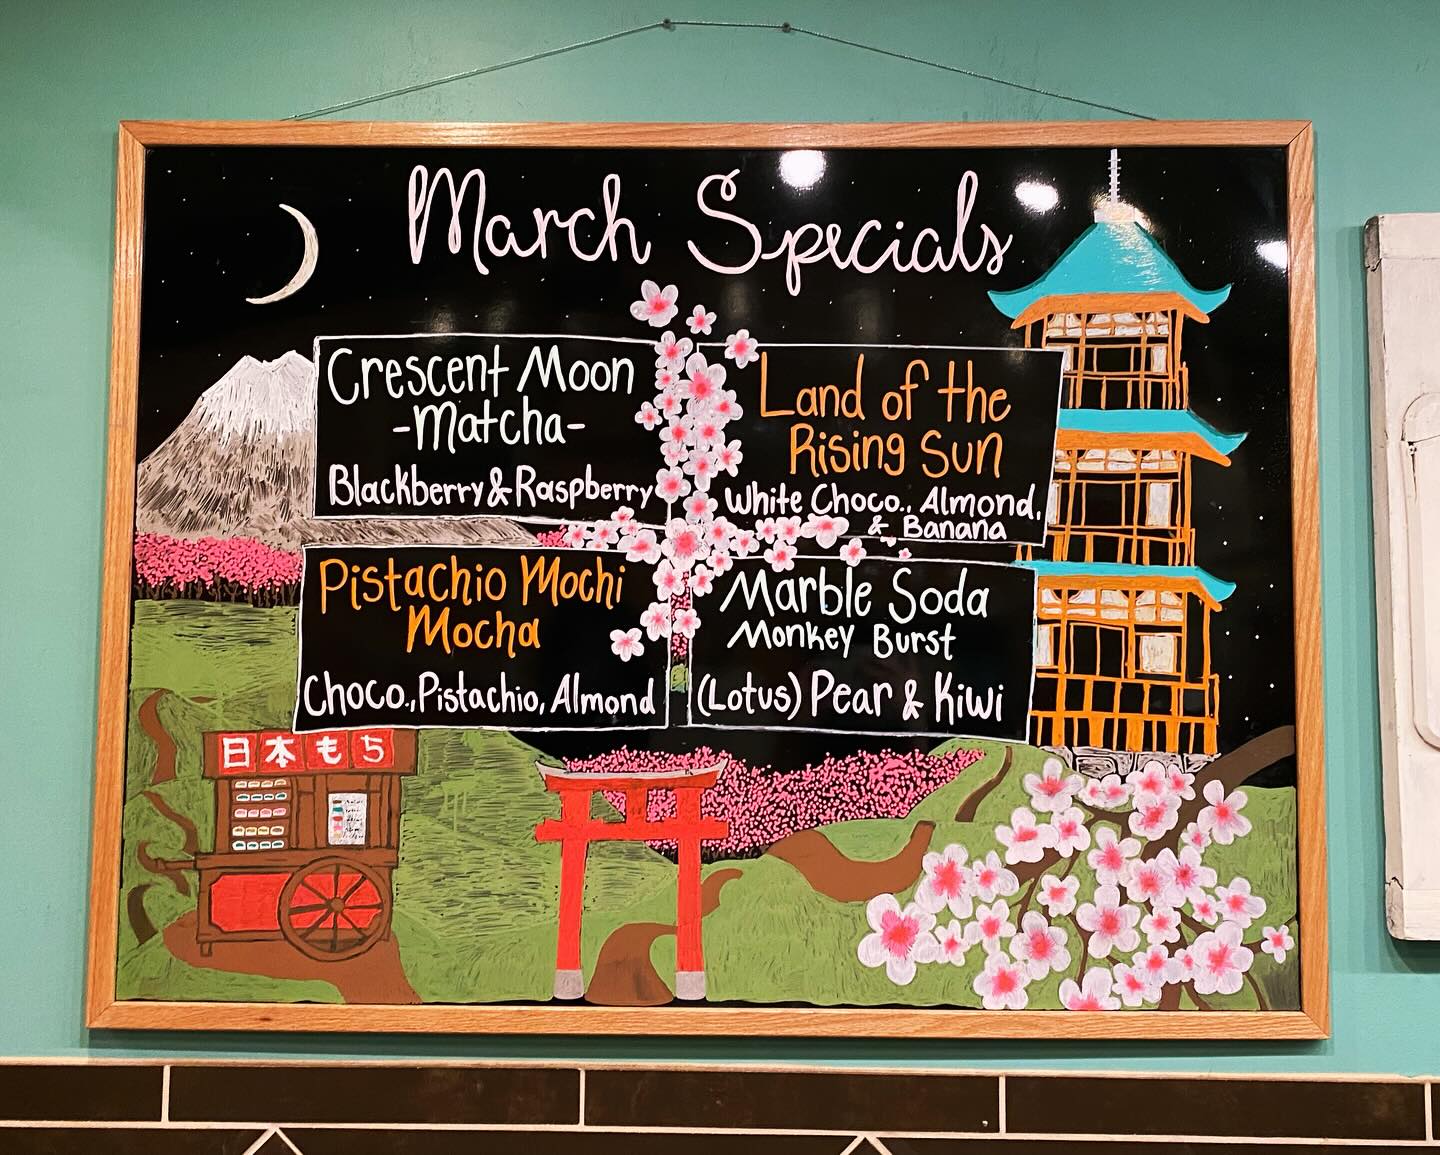 March Specials
Crescent Moon
-Matcha-
Blackberry & Raspberry
Land of the
Rising Sun
White Choco., Almond,
& Banana
Pistachio Mochi
Mocha
Choco., Pistachio, Almond
Marble Soda
Monkey Burst
(Lotus) Pear & Kiwi
日本もち